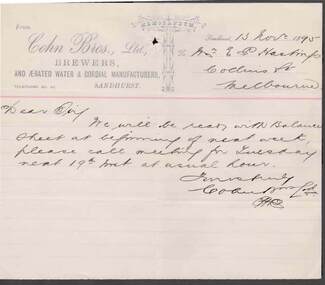 MEMORANDUM
From
Cohn Bros., Ltd,
BREWERS,
AND ÆRATED WATER & CORDIAL MANUFACTURERS,
SANDHURST.
Sandhurst, 13 Nov. 1895
To Mr E P Hastings
Collins St
Melbourne
Dear Sir
We will be ready with Balance
Sheet at beginning of next week,
please call meeting for Tuesday
next 19th Inst at usual hour.
Yours truly
Cohn Bros Ltd